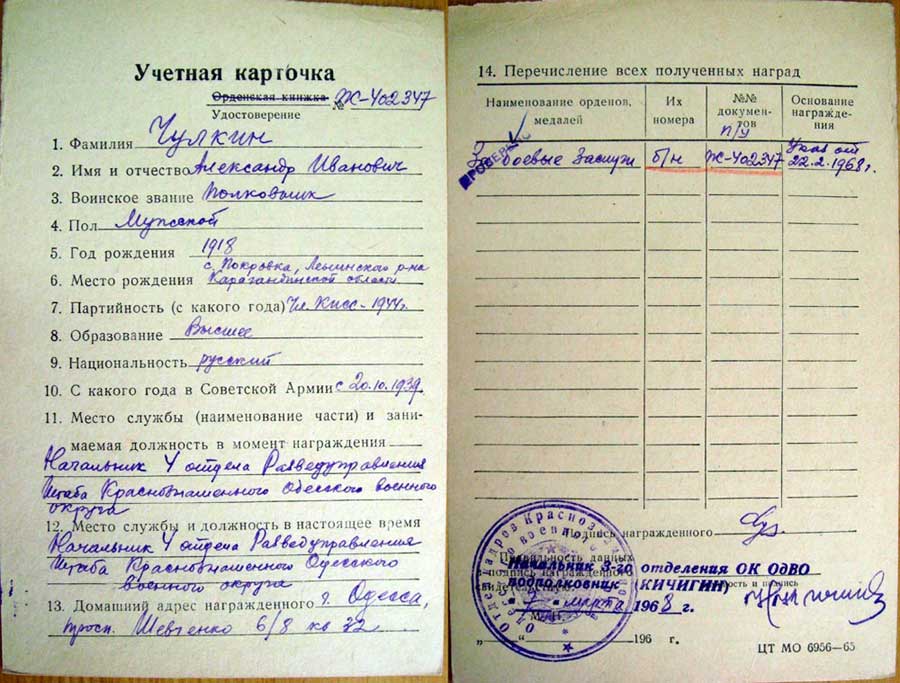 Учетная карточка
Орденская книжка
Удостоверение № Ж-402347
1. Фамилия Чулкин
2. Имя и отчество Александр Иванович
3. Воинское звание Полковник
4. Пол Мужской
5. Год рождения 1918
с. Покровка, Ленинского р-на
6. Место рождения Карагандинской области
7. Партийность (с какого года) Чл. КПСС - 1944г.
8. Образование Высшее
9. Национальность русский
10. С какого года в Советской Армии с 20.10.1939
11. Место службы (наименование части) и зани-
маемая должность в момент награждения
Начальник 4 отдела Разведуправления
Штаба Краснознаменного Одесского военного
округа
12. Место службы и должность в настоящее время
Начальник 4 отдела Разведуправления
Штаба Краснознаменного Одесского
военного округа
13. Домашний адрес награжденного г. Одесса,
просп. Шевченко 6/8 кв 32
14. Перечисление всех полученных наград
Наименование орденов, медалей
Их номера
№№ документов
п/у
Основание награждения
За боевые заслуги б/н Ж-402347 Указ от 22.2.1968г.
Подпись награжденного
Правильность данных
и подпись награжденного
Начальник 3-го отделения ОК ОдВО
подполковник (КИЧИГИН)
7 марта 1968 г.
„ “ 196 г.
ЦТ МО 6956—65